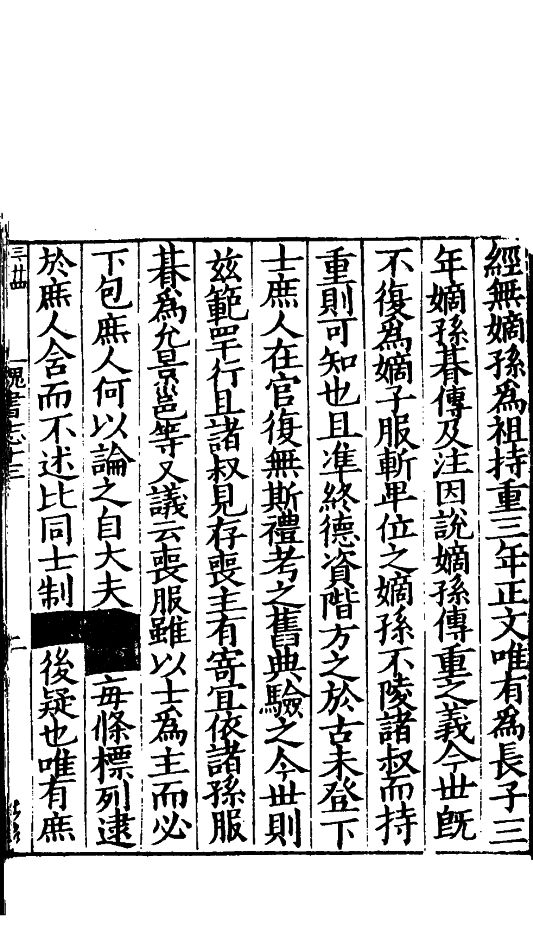 經無嫡孫爲祖持重三年正文唯有爲長子三
年嫡孫朞傳及注因說嫡孫傳重之義今世既
不復爲嫡子服斬卑位之嫡孫不陵諸叔而持
重則可知也且準終德資階方之於古未登下
士庶人在官復無斯禮考之舊典驗之今世則
兹範罕行且諸叔見存喪主有寄宜依諸孫服
朞爲允景邕等又議云喪服雖以士爲主而必
下包庶人何以論之自大夫
每條標列逮
於庶人含而不述比同士制
後疑也唯有庶
三廿四
魏書志十三
二